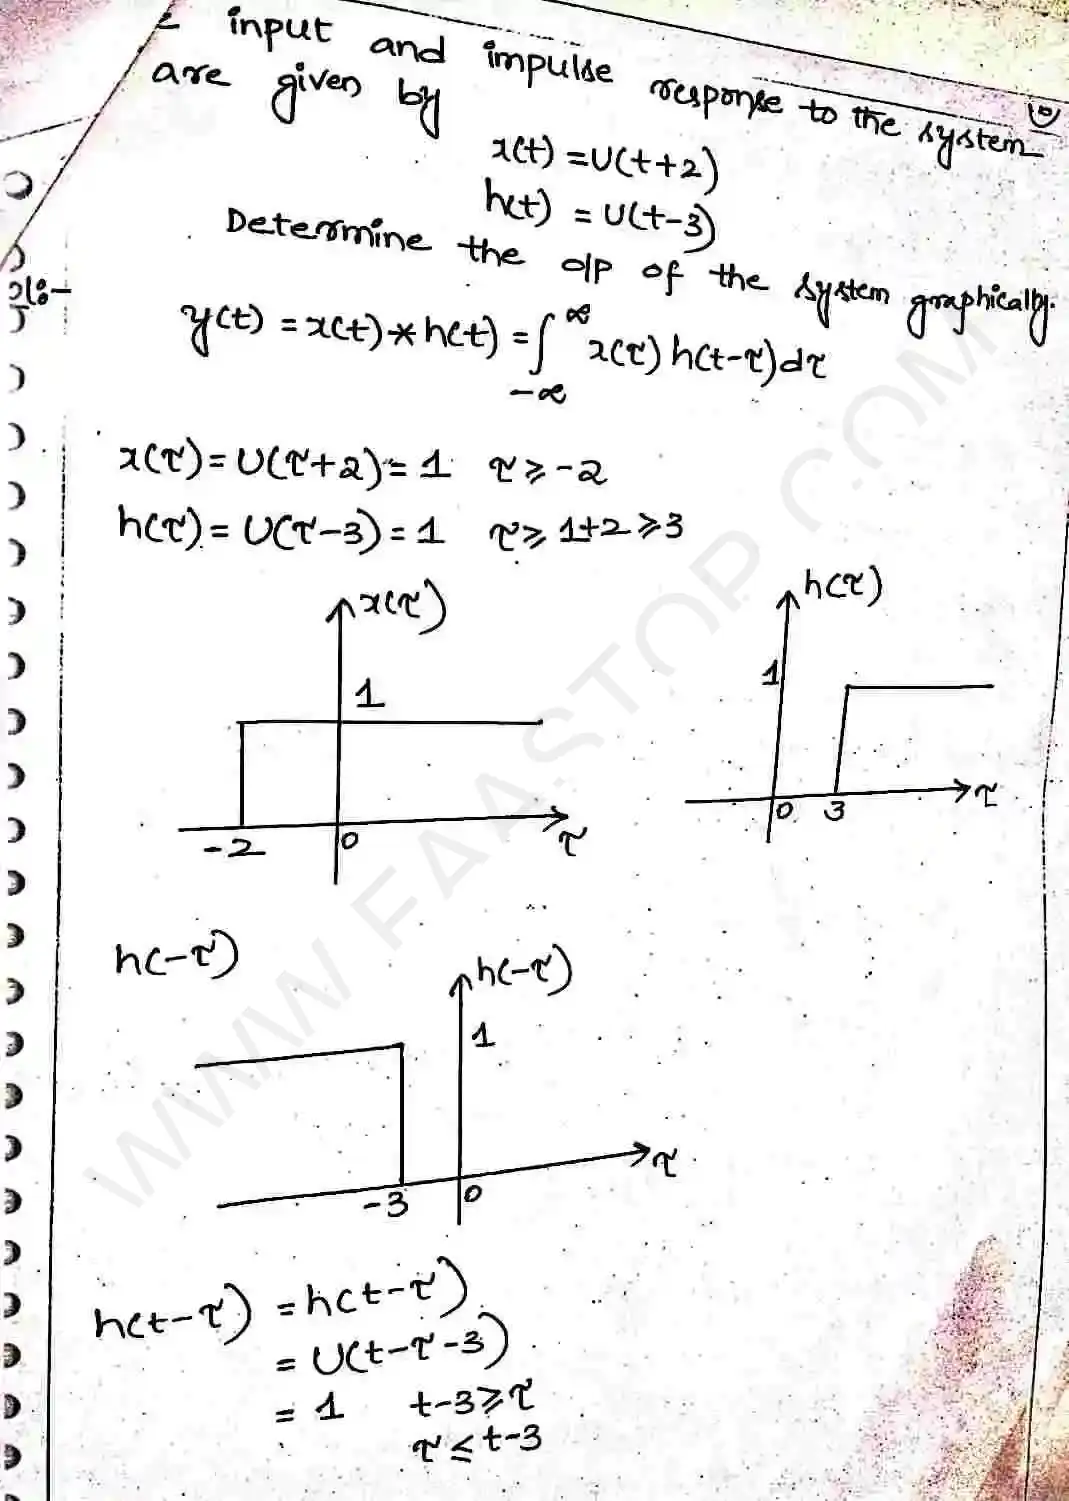 input and impulse response to the system
are given by
x(t) = U(t+2)
h(t) = U(t-3)
Determine the o/p of the system graphically.
y(t) = x(t) * h(t) = ∫_{-∞}^{∞} x(τ) h(t-τ) dτ
x(τ) = U(τ+2) = 1 τ ≥ -2
h(τ) = U(τ-3) = 1 τ ≥ 1+2 ≥ 3
x(τ)
1
-2 0 τ
h(τ)
1
0 3 τ
h(-τ)
h(-τ)
1
-3 0 τ
h(t-τ) = h(t-τ)
= U(t-τ-3)
= 1 t-3 ≥ τ
τ ≤ t-3
WWW.FAASTOP.COM